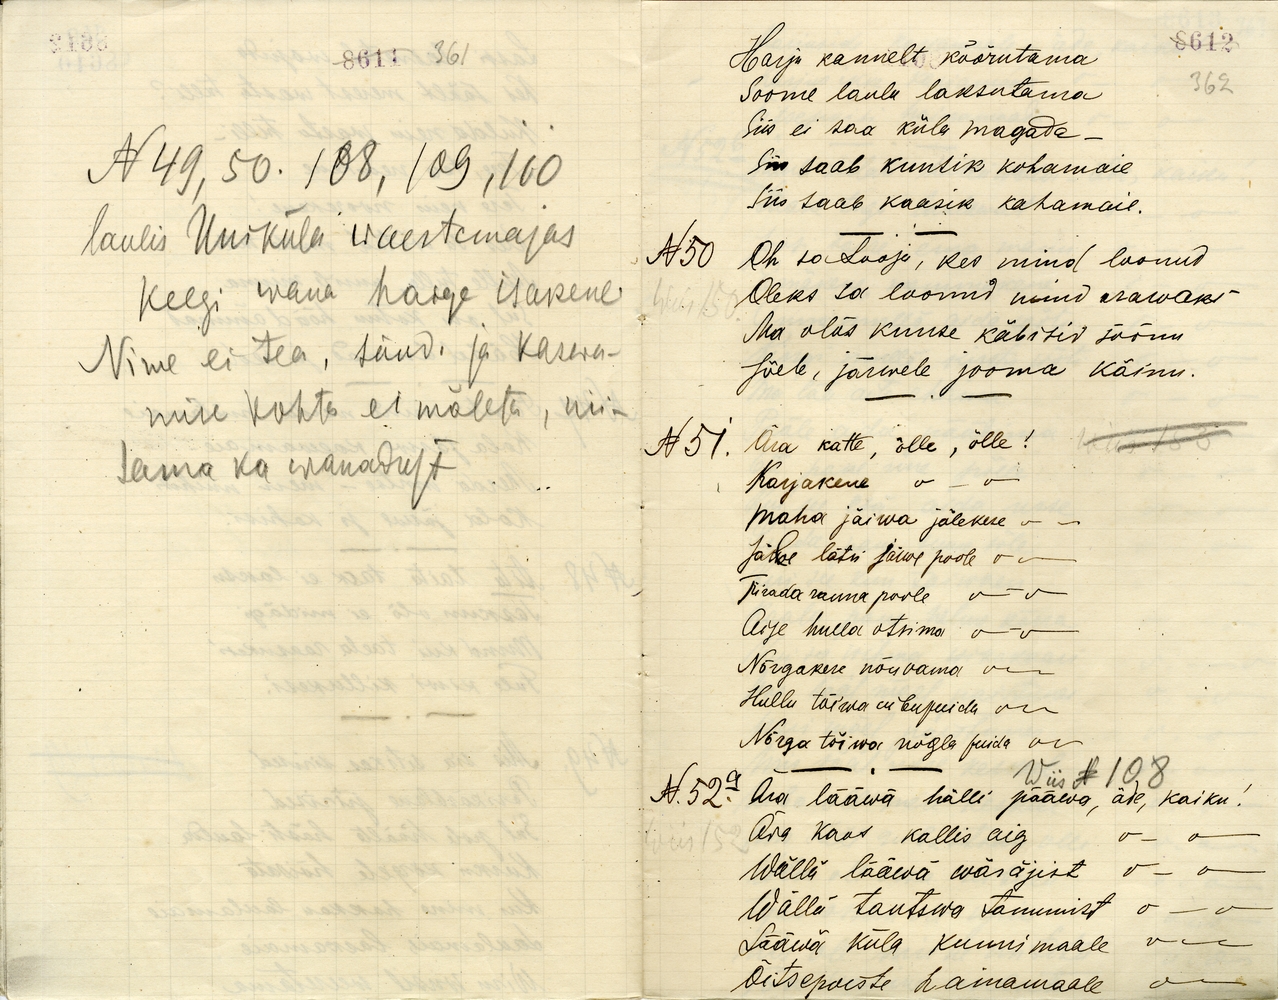 8611 361
N 49, 50. 108, 109, 110
laulis Uniküla waestemajas
keegi wana haige isakene
Nime ei tea, sünd. ja kaswa-
mise kohta ei mäleta, nii-
sama ka wanadust
8612
362
Harju kannelt köörutama
Soome laulu laksutama
Siis ei saa küla magada –
Siis saab kuusik kohamaie
Siis saab kaasik kahamaie.
N 50 Oh sa Looja, kes mind loonud
Oleks sa loonud mind arawaks
Ma oläs kuuse käbisid söönu
Jõele, järwele jooma käinu.
N 51. Ära katte, õlle, õlle!
Karjakene o – o –
Maha jäiwa jälekese o – –
Jälse lätsi järwe poole o –
Piirada ranna poole o – o –
Aije hulla otsima o – o –
Nõrgakese nõuvama o –
Hullu tõiwa uibupuida o –
Nõrga tõiwa nõgla puida o –
Wiis # 108
N. 52 a Ära lääwä hälli pääwa, äde, kaiku!
Ära kaos kallis aig o – o –
Wällä lääwä wäräjist o – o –
Wällä tautswa tammist o – o –
Lääwä küla kunnimaale o –
Õitsepoiste hainamaale o –